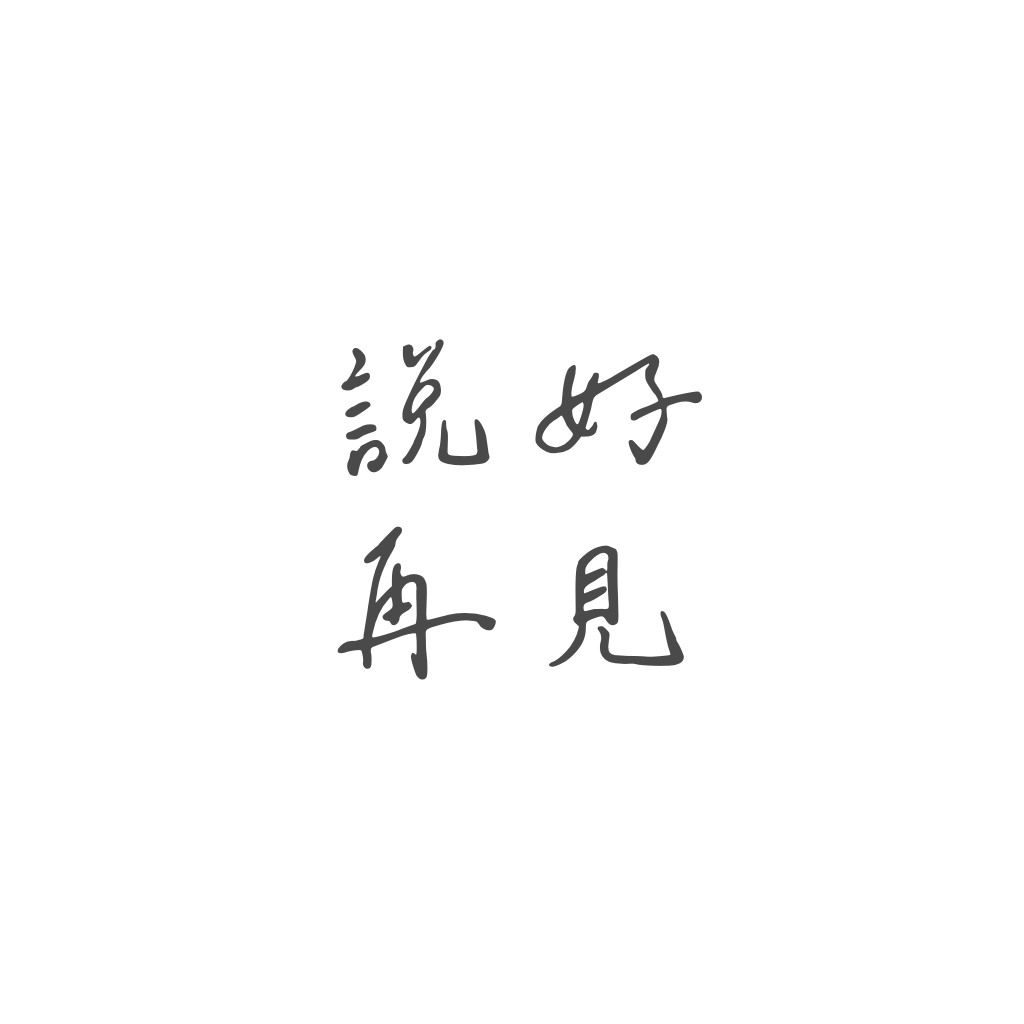 說好
再見